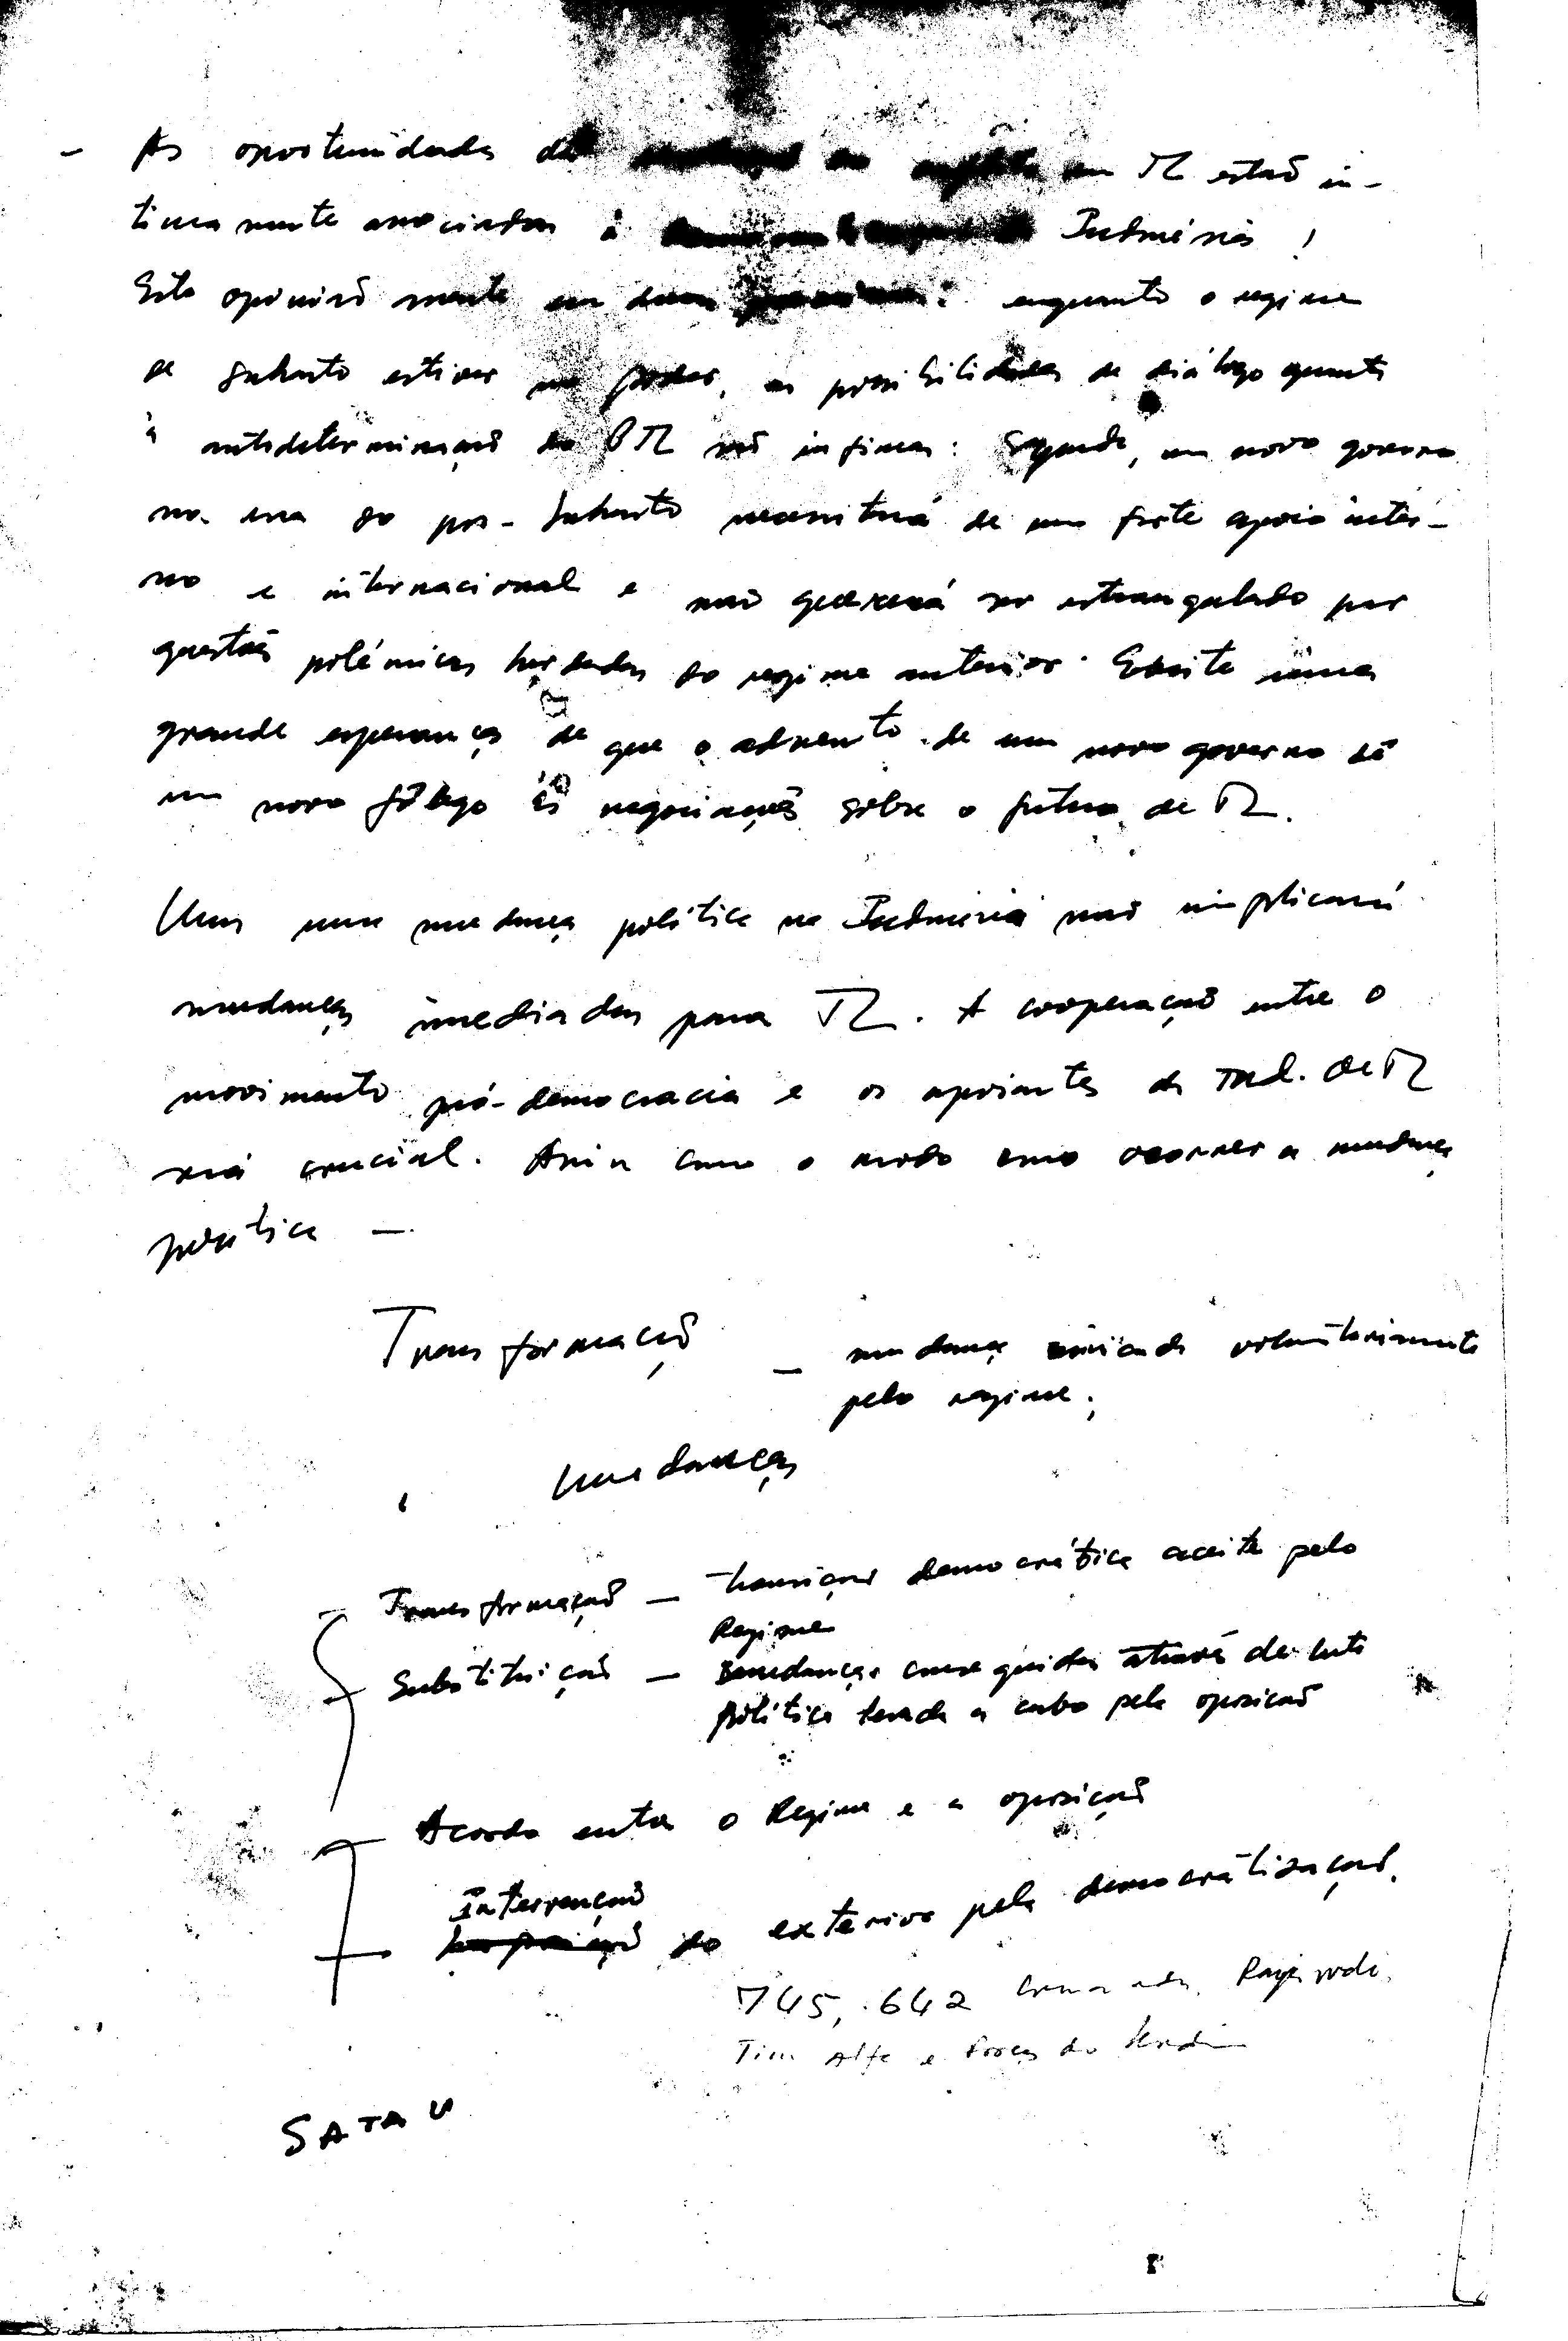 - As oportunidades de em TL estão in-
timamente associadas à Indonésia !
Esta opinião assenta em duas : enquanto o regime
de Suharto estiver no poder, as possibilidades de diálogo quanto
à autodeterminação do PTL são ínfimas: Segundo, um novo governo
na era do pos-Suharto necessitará de um forte apoio inter-
no e internacional e não quererá ser estrangulado por
questões polémicas herdadas do regime anterior. Existe uma
grande esperança de que o advento de um novo governo dê
um novo fôlego às negociações sobre o futuro de TL.
Mas uma mudança política na Indonésia não implicará
mudanças imediatas para TL. A cooperação entre o
movimento pró-democracia e os apoiantes da Ind. de TL
será crucial. Assim como o modo como ocorrer a mudança
política -
Transformação - mudança iniciada voluntariamente
pelo regime;
Mudanças
Transformação - transição democrática aceite pelo
Regime
Substituição - mudanças conseguidas através de luta
política levada a cabo pela oposição
Acordo entre o Regime e a oposição
Intervenção
do exterior pela democratização.
745, .642
Tim Alfa e
SATAU